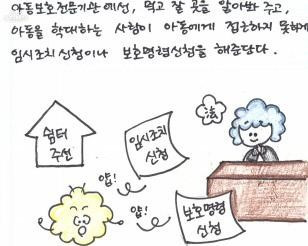 아동보호전문기관에선, 먹고 잘 곳을 알아봐 주고,
아동을 학대하는 사람이 아동에게 접근하지 못하게
임시조치 신청이나 보호명령신청을 해준단다.
쉼터
주선
임시조치
신청
法
얍!
얍!
보호명령
신청